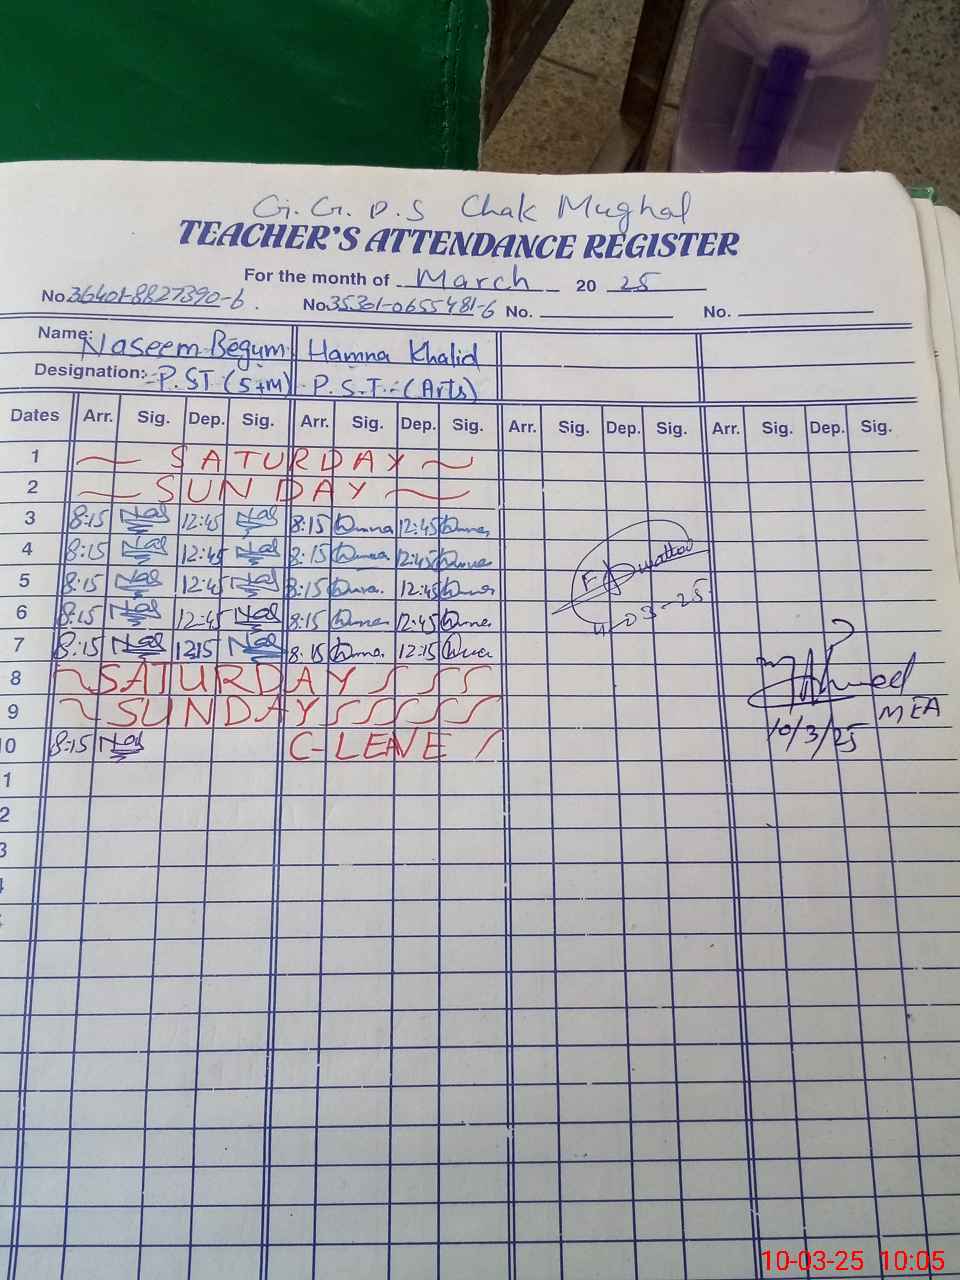 G. G. P. S Chak Mughal
TEACHER'S ATTENDANCE REGISTER
For the month of March 20 25
No. 36401-8827390-6. No. 35301-0655481-6 No. No.
Name: Naseem Begum Hamna Khalid
Designation:- P.ST (S+M) P.S.T.-(Arts)
Dates Arr. Sig. Dep. Sig. Arr. Sig. Dep. Sig. Arr. Sig. Dep. Sig. Arr. Sig. Dep. Sig.
1 SATURDAY
2 SUNDAY
3 8:15 Nas 12:45 Nas 8:15 12:45
4 8:15 Nas 12:45 Nas 8:15 12:45
5 8:15 Nas 12:45 Nas 8:15 12:45
6 8:15 Nas 12:45 Nas 8:15 12:45
-03-25
7 8:15 Nas 12:15 Nas 8:15 12:15
8 SATURDAY
Ahmed
9 SUNDAY
MEA
10/3/25
10 8:15 Nas C-LEAVE
1
2
3
4
10-03-25 10:05